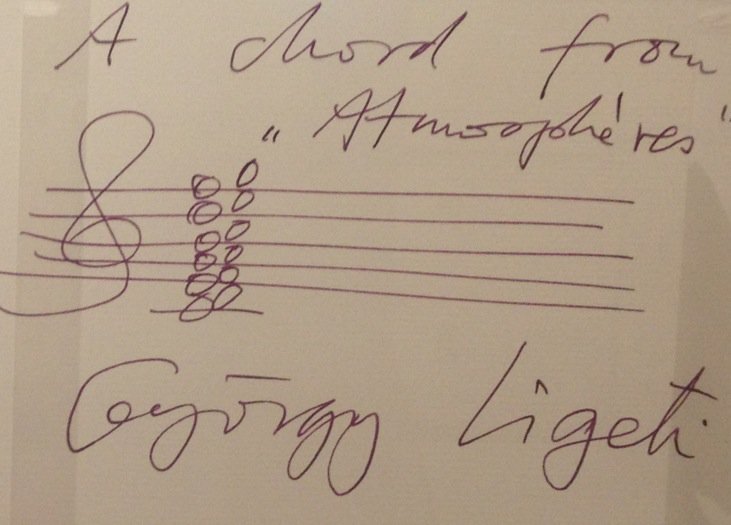 A chord from
„Atmosphéres"
György Ligeti